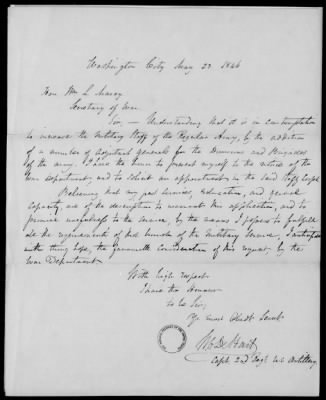 Washington City May 23 1846
Hon Wm L Marcy
Secretary of War
Sir, — Understanding that it is in contemplation
to increase the Military Staff of the Regular Army, by the addition
of a number of Adjutant generals for the Divisions and Brigades
of the army, I have the honor to present myself to the notice of the
War Department, and to solicit an appointment in the said Staff Corps
Believing that my past services, education, and general
capacity, are of the description to warrant this application, and to
promise usefulness to the service, by the means I propose to fulfill
all the requirements of that branch of the Military Service, I
with strong hope, the favourable consideration of this request, by the
War Department
With high respect
I have the Honour
to be Sir,
Yr most Obedt Servt
W C De Hart
Capt. 2nd Regt U.S. Artillery